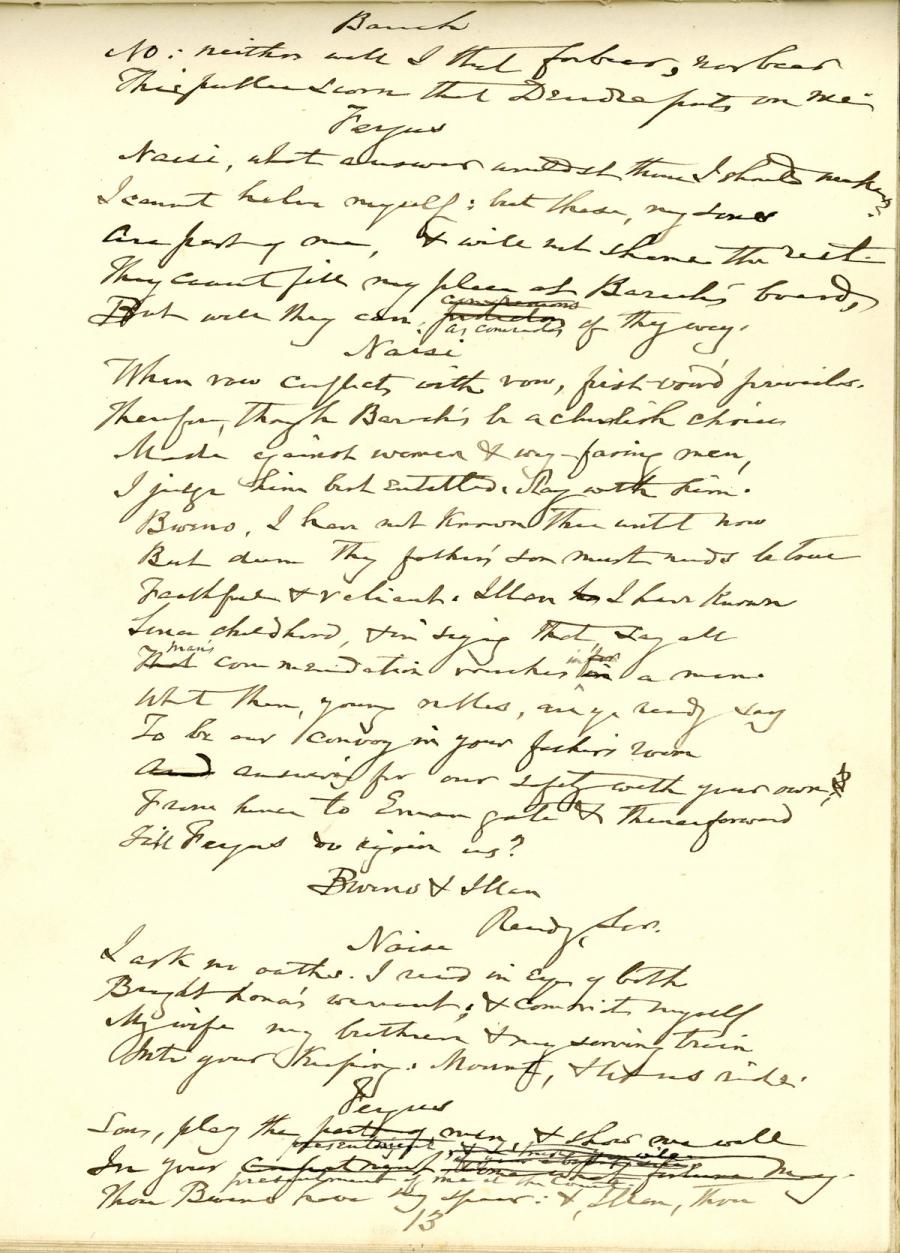 Baruch
No: neither will I that forbear, nor bear
This sullen scorn that Deirdre puts on me.
Fergus
Naisi, what answer wouldst thou I should make?
I cannot halve myself: but these, my sons
Are part of me, & will not shame the rest.
They cannot fill my place at Baruch's board,
But well they can: as comrades of thy way.
Naisi
When vow conflicts with vow, first-vow'd prevails.
Therefore, though Baruch's be a churlish choice
Made against women & way-faring men,
I judge him best entitled: stay with him.
Bwino, I have not known thee until now
But deem thy father's son must needs be true
Faithful & valiant. Illan I have known
Since childhood, & in saying that, say all
Man's commendation vouches in a man.
What then, young nobles, are ye ready say
To be our convoy in your father's room
And answering for our safety with your own,
From hence to Eman gate & thenceforward
Till Fergus do rejoin us?
Bwino & Illan
Ready, Sir.
Naisi
I ask no oaths. I read in eyes of both
Bright honor's warrant; & commit myself
My wife my brethren & my serving train
Into your keeping. Mount, & let us ride.
Fergus
Sons, play the men, & show me well
In your presentment of me at the Court.
Thou Bwino have my spear: &, Illan, thou
13